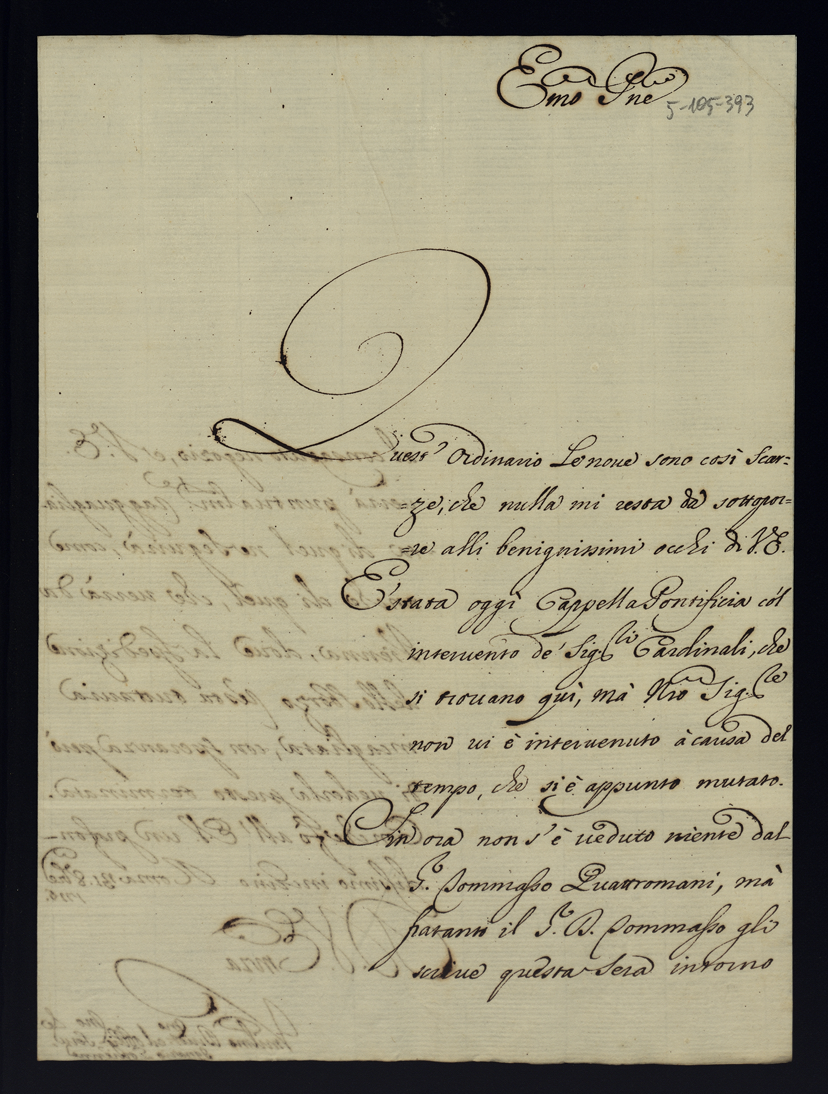 Emo Pne
5-105-393
Quest' Ordinario Le noue sono così scar=
=ze, che nulla mi resta da sottopor=
=re alli benignissimi occhi di V.E.
E' stata oggi Cappella Pontificia col
intervento de' Sig.li Cardinali, che
si trouano quì, mà Nro Sig.re
non ui è interuenuto à causa del
tempo, che si è appunto mutato.
Fin ora non s'è ueduto niente dal
S.r Tommasso Quattromani, mà
fratanto il S.r D. Tommasso gli
scriue questa sera intorno